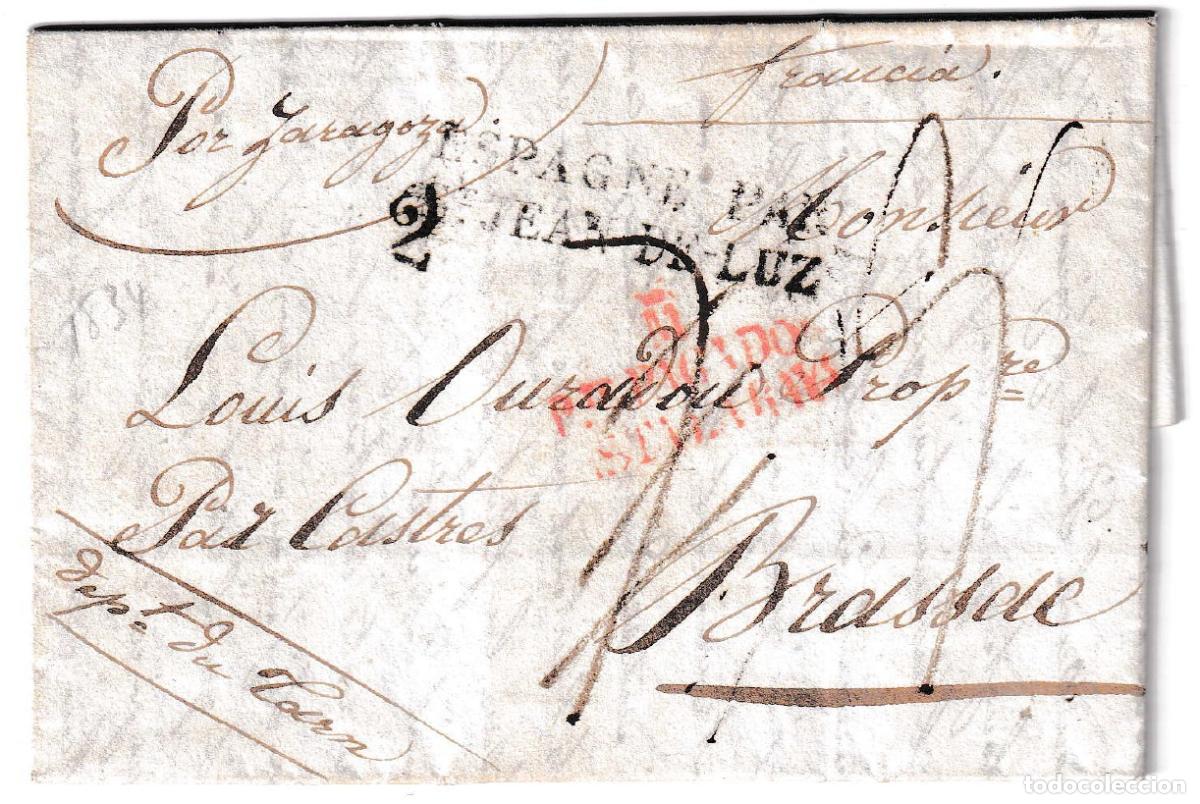 francia.
Por Zaragoza
ESPAGNE PAR
ST JEAN-DE-LUZ
2
Monsieur
1834
Louis Ouradou Propre
Par Castres
Brassac
dept. du Tarn
todocoleccion